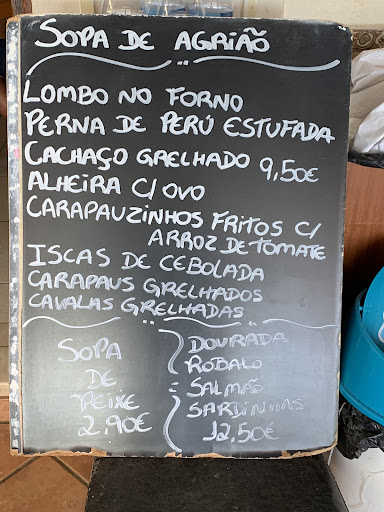 SOPA DE AGRIÃO
LOMBO NO FORNO
PERNA DE PERÚ ESTUFADA
CACHAÇO GRELHADO 9,50€
ALHEIRA C/ OVO
CARAPAUZINHOS FRITOS C/
ARROZ DE TOMATE
ISCAS DE CEBOLADA
CARAPAUS GRELHADOS
CAVALAS GRELHADAS
SOPA
DE
PEIXE
2,90€
DOURADA
ROBALO
SALMÃO
SARDINHAS
12,50€